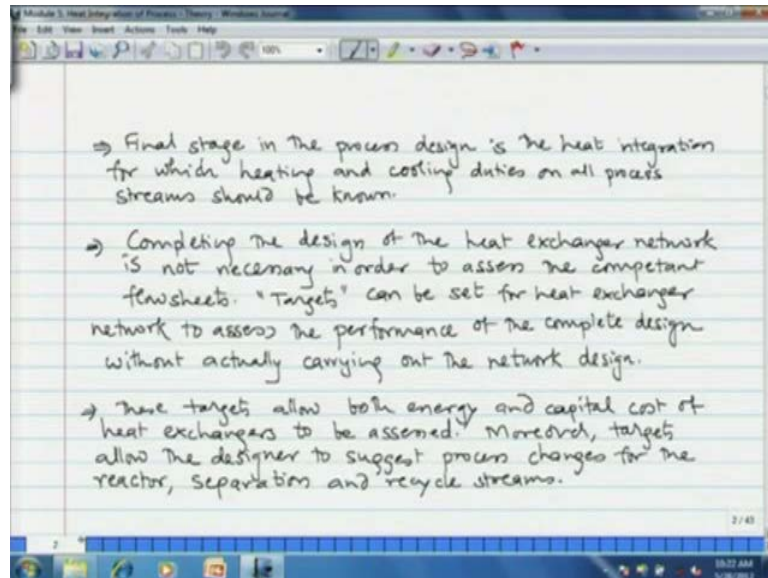 Module 5: Heat Integration of Process - Theory - Windows Journal
File Edit View Insert Actions Tools Help
100%
⇒ Final stage in the process design is the heat integration
for which heating and cooling duties on all process
streams should be known.
⇒ Completing the design of the heat exchanger network
is not necessary in order to assess the competant
flowsheets. "Targets" can be set for heat exchanger
network to assess the performance of the complete design
without actually carrying out the network design.
⇒ These targets allow both energy and capital cost of
heat exchangers to be assessed. Moreover, targets
allow the designer to suggest process changes for the
reactor, separation and recycle streams.
2/43
2
10:22 AM